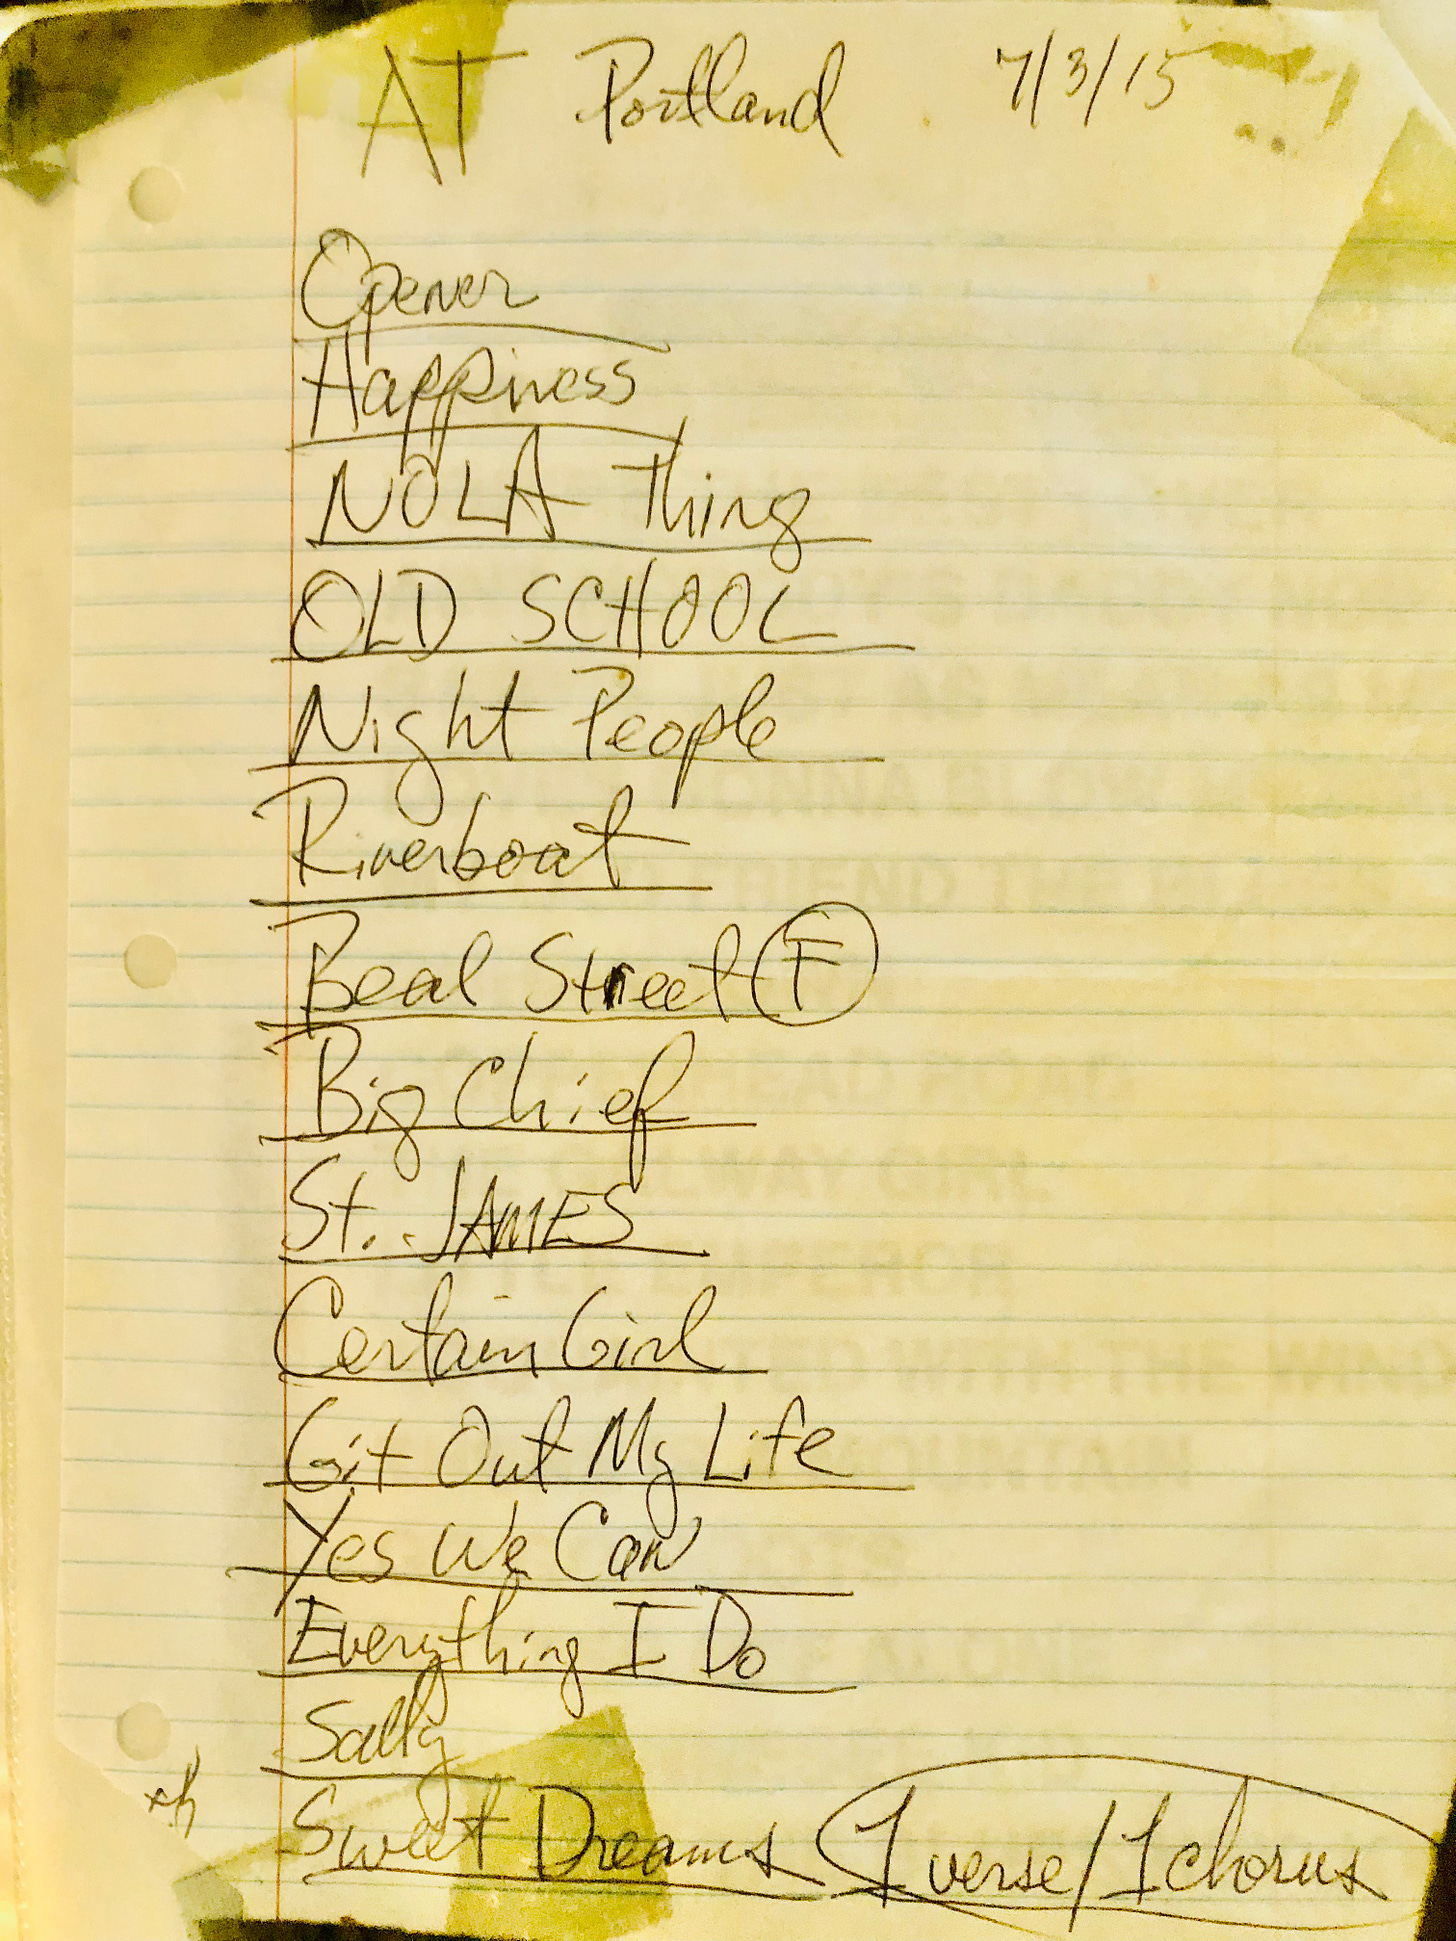 AT Portland 7/3/15
Opener
Happiness
NOLA Thing
OLD SCHOOL
Night People
Riverboat
Beal Street F
Big Chief
St. JAMES
Certain Girl
Git Out My Life
Yes We Can
Everything I Do
Sally
Sweet Dreams 1 verse/1 chorus